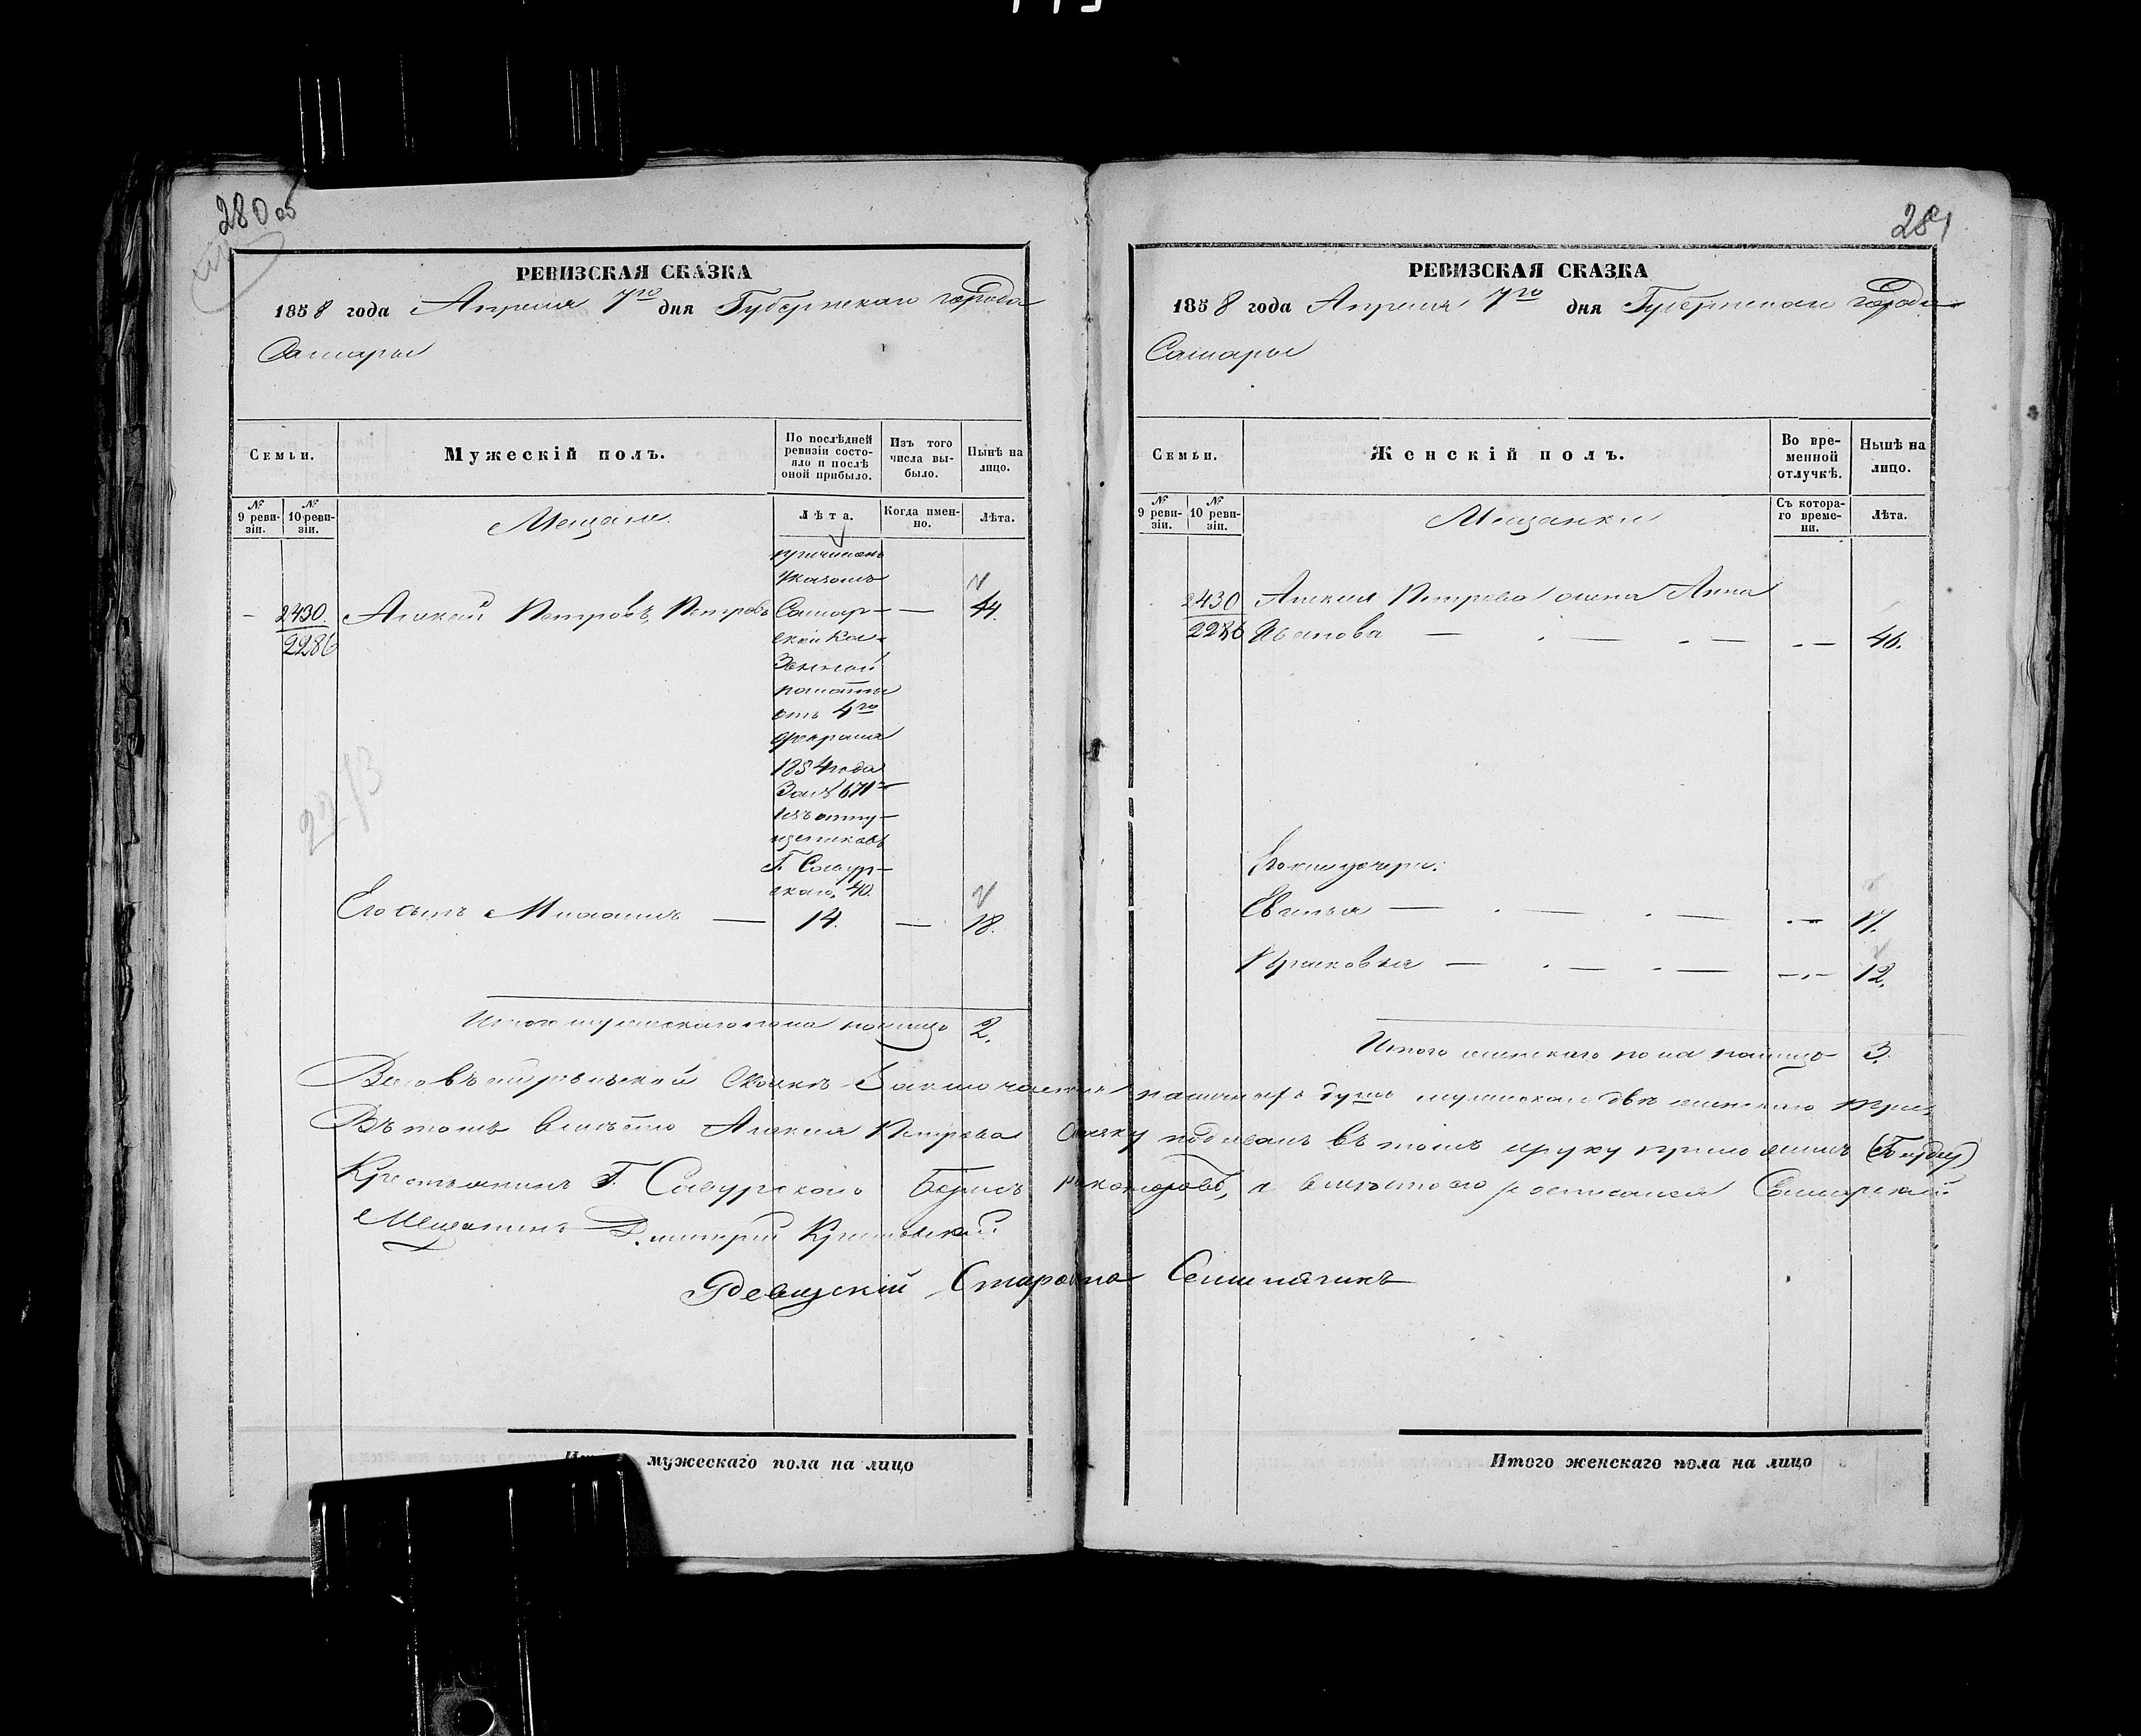 280 об
РЕВИЗСКАЯ СКАЗКА
1858 года Апреля 7го дня Губернскаго города
Самары
Семьи.
Мужескій полъ.
По послѣдней ревизіи состояло и послѣ оной прибыло.
Изъ того числа выбыло.
Нынѣ на лицо.
№ 9 ревизіи.
№ 10 ревизіи.
Мещане.
Лѣта.
Когда именно.
Лѣта.
причисленъ
указомъ
— 2430. Алексей Петровъ Петровъ Самар- — 44.
2286 ской Ка-
зенной
палаты
отъ 4го
февраля
1854 года
За № 671
изъ отпу-
щенниковъ
Г. Самур-
скаго. 40.
2273
Его сынъ — 14. — 18.
Итого мужескаго пола налицо 2.
281
РЕВИЗСКАЯ СКАЗКА
1858 года Апреля 7го дня Губернскаго города
Самары
Семьи.
Женскій полъ.
Во временной отлучкѣ.
Нынѣ на лицо.
№ 9 ревизіи.
№ 10 ревизіи.
Мещанки
Съ котораго времени.
Лѣта.
2430 Алексея Петрова жена Анна
2286 Иванова — — — 46.
дочери:
Евгенья — — — 17.
Прасковья — — — 12.
Итого женскаго пола налицо 3.
Всего въ сей ревизской Сказке Заключается налицо душъ мужескаго две женскаго три
Въ томъ вместо Алексея Петрова Сказку подавалъ въ томъ и руку приложилъ
Крестьянинъ Г. Самурскаго Борисъ а вместо его росписался Самарской
Мещанинъ Дмитрий
Староста
Итого мужескаго пола на лицо
Итого женскаго пола на лицо